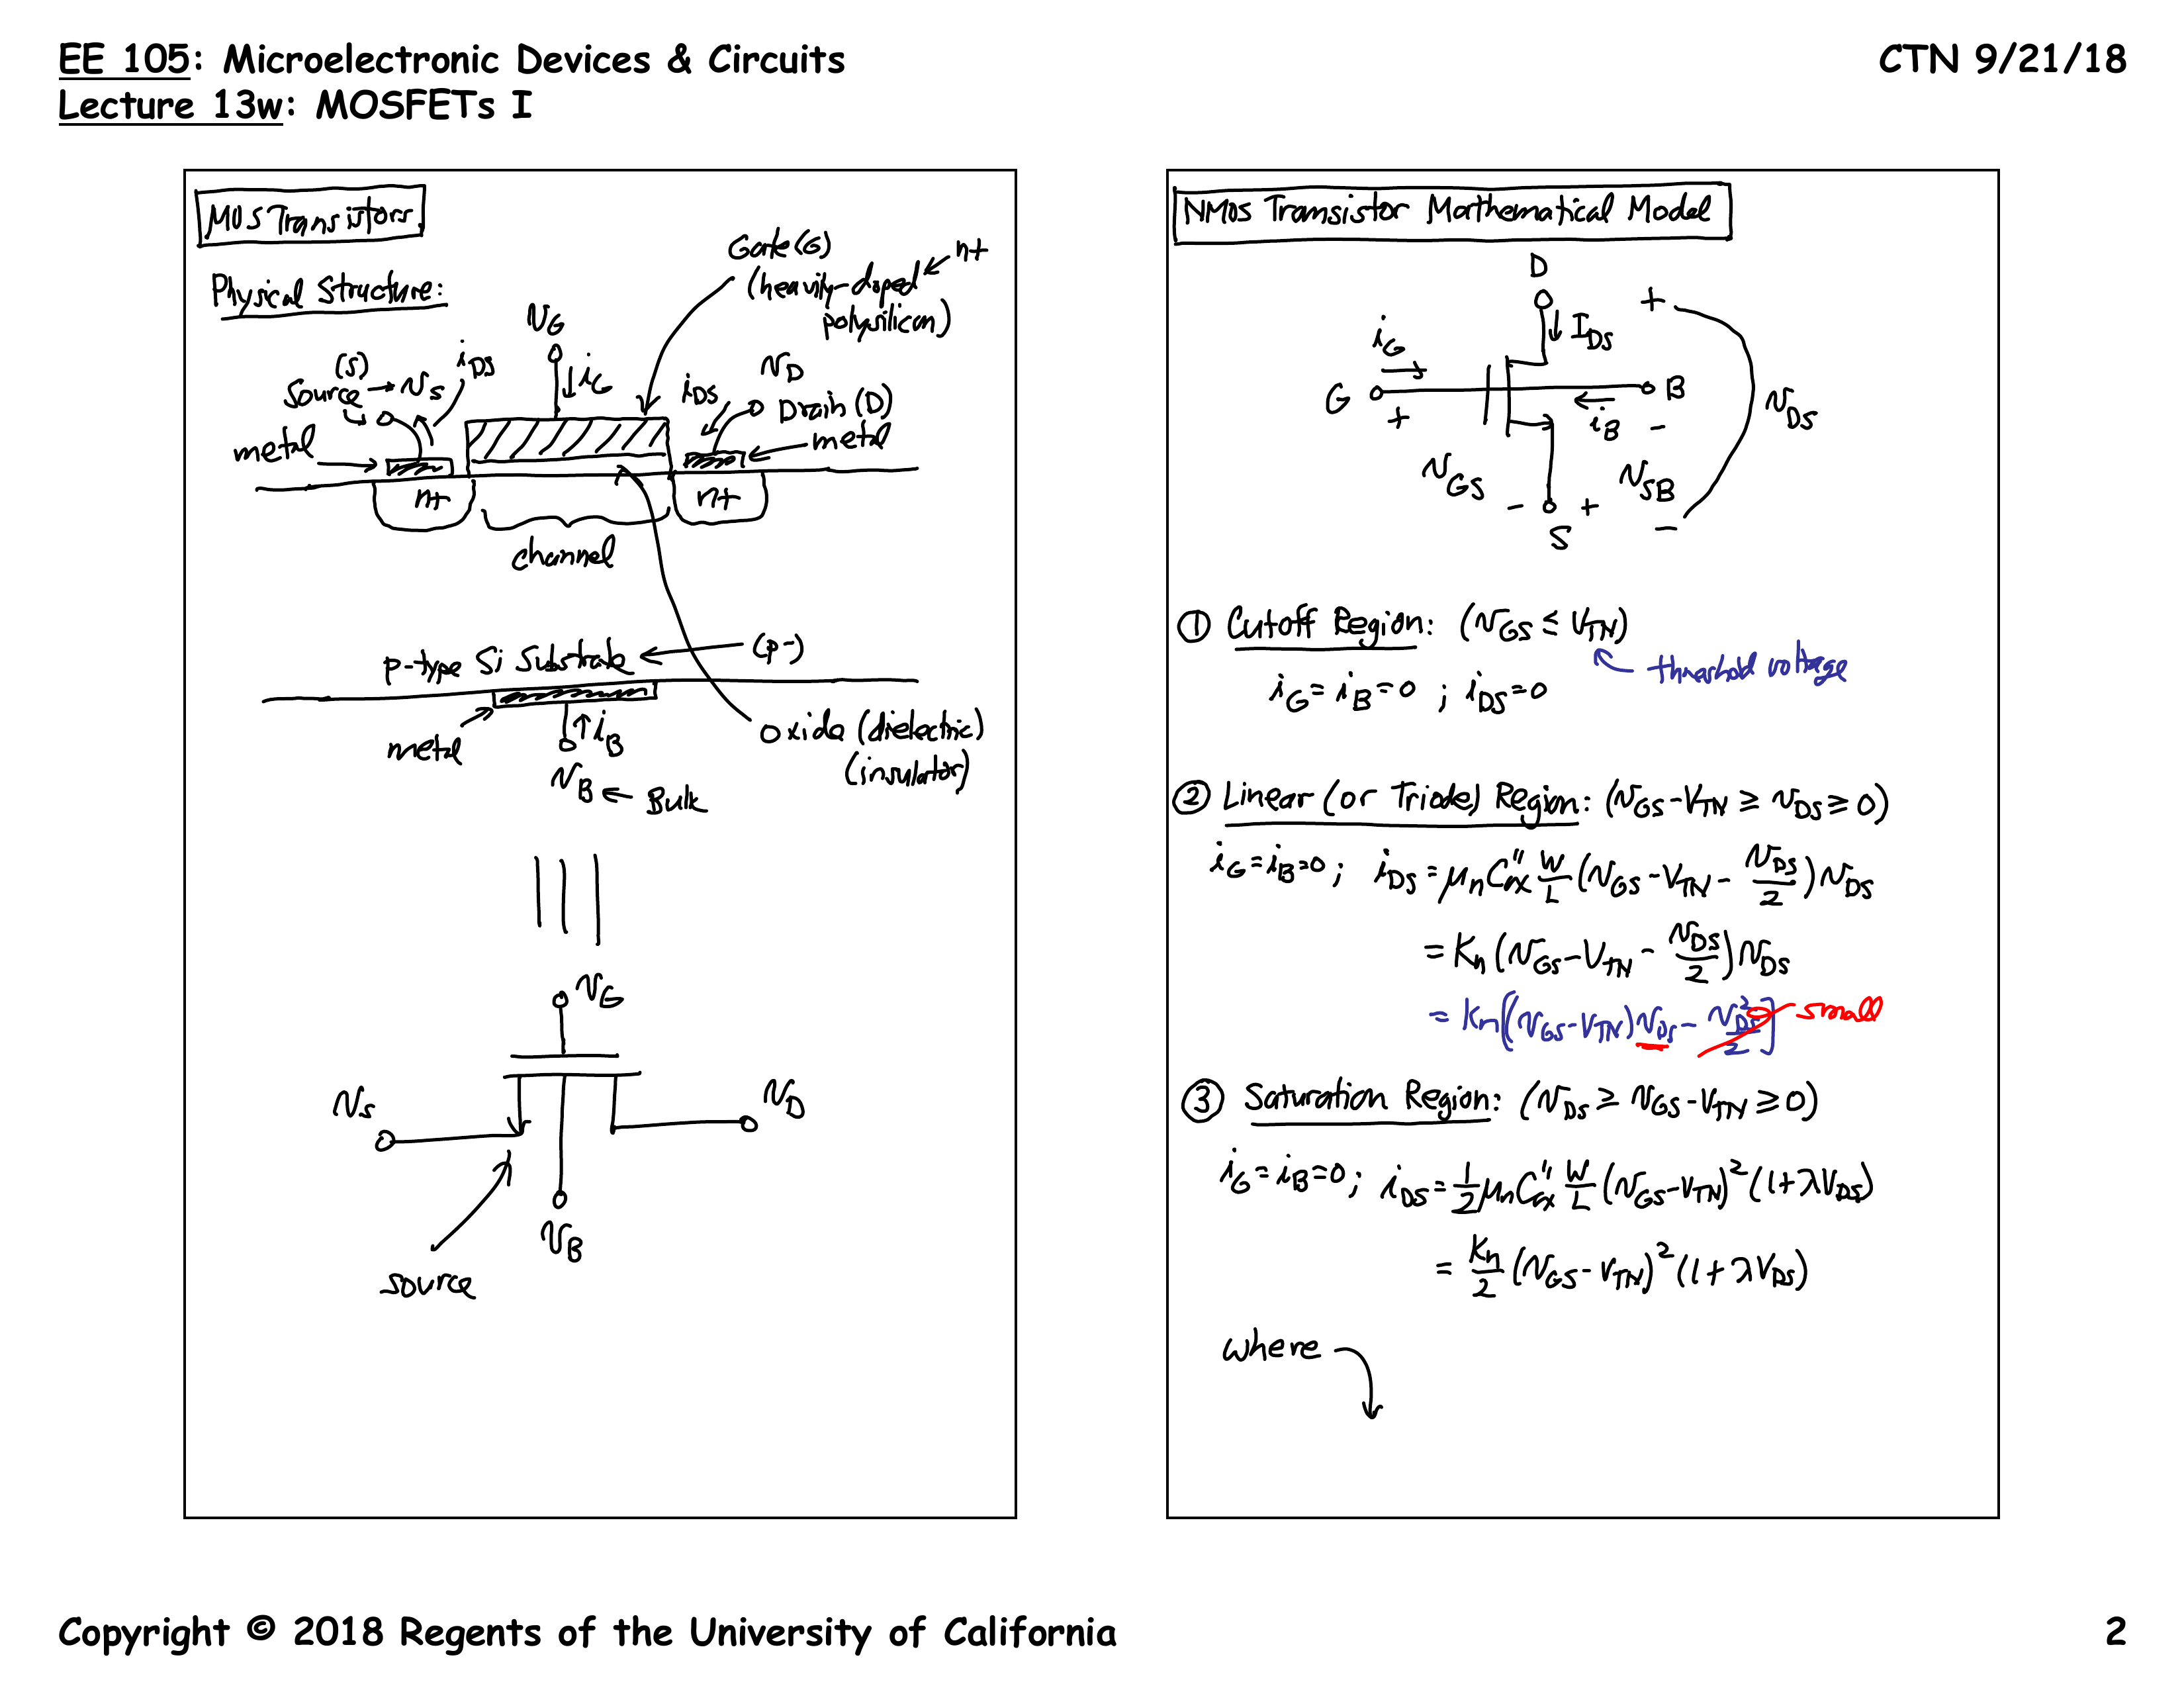 EE 105: Microelectronic Devices & Circuits
CTN 9/21/18
Lecture 13w: MOSFETs I
MOS Transistors
Physical Structure:
Gate (G)
(heavily-doped
polysilicon)
n+
v_G
i_G
(S)
Source → v_S
i_DS
i_DS
v_D
Drain (D)
metal
metal
n+
n+
channel
p-type Si Substrate
(p-)
metal
i_B
v_B ← Bulk
oxide (dielectric)
(insulator)
v_G
v_S
v_D
v_B
source
NMOS Transistor Mathematical Model
D
+
I_DS
i_G
G
B
+
i_B
-
v_DS
v_GS
v_SB
-
+
-
S
① Cutoff Region: (v_GS ≤ V_TN)
threshold voltage
i_G = i_B = 0 ; i_DS = 0
② Linear (or Triode) Region: (v_GS - V_TN ≥ v_DS ≥ 0)
i_G = i_B = 0 ; i_DS = μ_n C_ox'' W/L (v_GS - V_TN - v_DS/2) v_DS
= K_n (v_GS - V_TN - v_DS/2) v_DS
= K_n [(v_GS - V_TN) v_DS - v_DS²/2] small
③ Saturation Region: (v_DS ≥ v_GS - V_TN ≥ 0)
i_G = i_B = 0 ; i_DS = 1/2 μ_n C_ox'' W/L (v_GS - V_TN)² (1 + λV_DS)
= K_n/2 (v_GS - V_TN)² (1 + λV_DS)
where
Copyright © 2018 Regents of the University of California
2